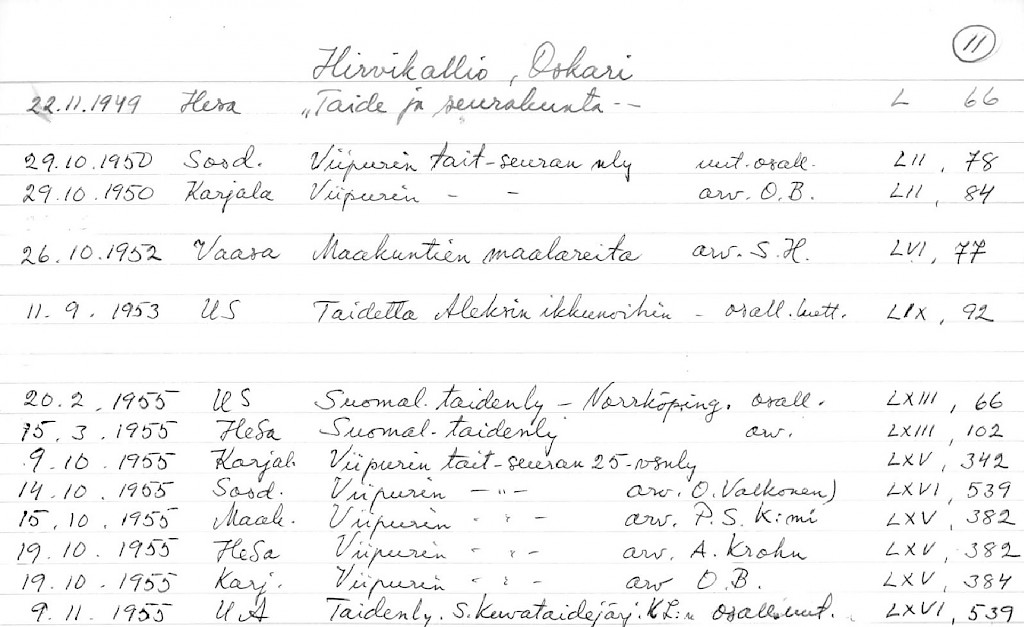 11
Hirvikallio, Oskari
22.11.1949 HeSa "Taide ja seurakunta -- L 66
29.10.1950 Sosd. Viipurin tait-seuran nly uut.osall. LII, 78
29.10.1950 Karjala Viipurin - - arv. O.B. LII, 84
26.10.1952 Vaasa Maakuntien maalareita arv. S.H. LVI, 77
11.9.1953 US Taidetta Aleksin ikkunoihin - osall.luett. LIX, 92
20.2.1955 US Suomal. taidenly - Norrköping. osall. LXIII, 66
15.3.1955 HeSa Suomal. taidenly arv. LXIII, 102
9.10.1955 Karjal. Viipurin tait-seuran 25-vsnly LXV, 342
14.10.1955 Sosd. Viipurin -"- arv. O. Valkonen) LXVI, 539
15.10.1955 Maak. Viipurin " " - arv. P.S. K:mi LXV, 382
19.10.1955 HeSa Viipurin " " - arv. A. Krohn LXV, 382
19.10.1955 Karj. Viipurin " " - arv O.B. LXV, 384
9.11.1955 UA Taidenly. S.Kuvataidejärj. KL:n osall.uut. LXVI, 539